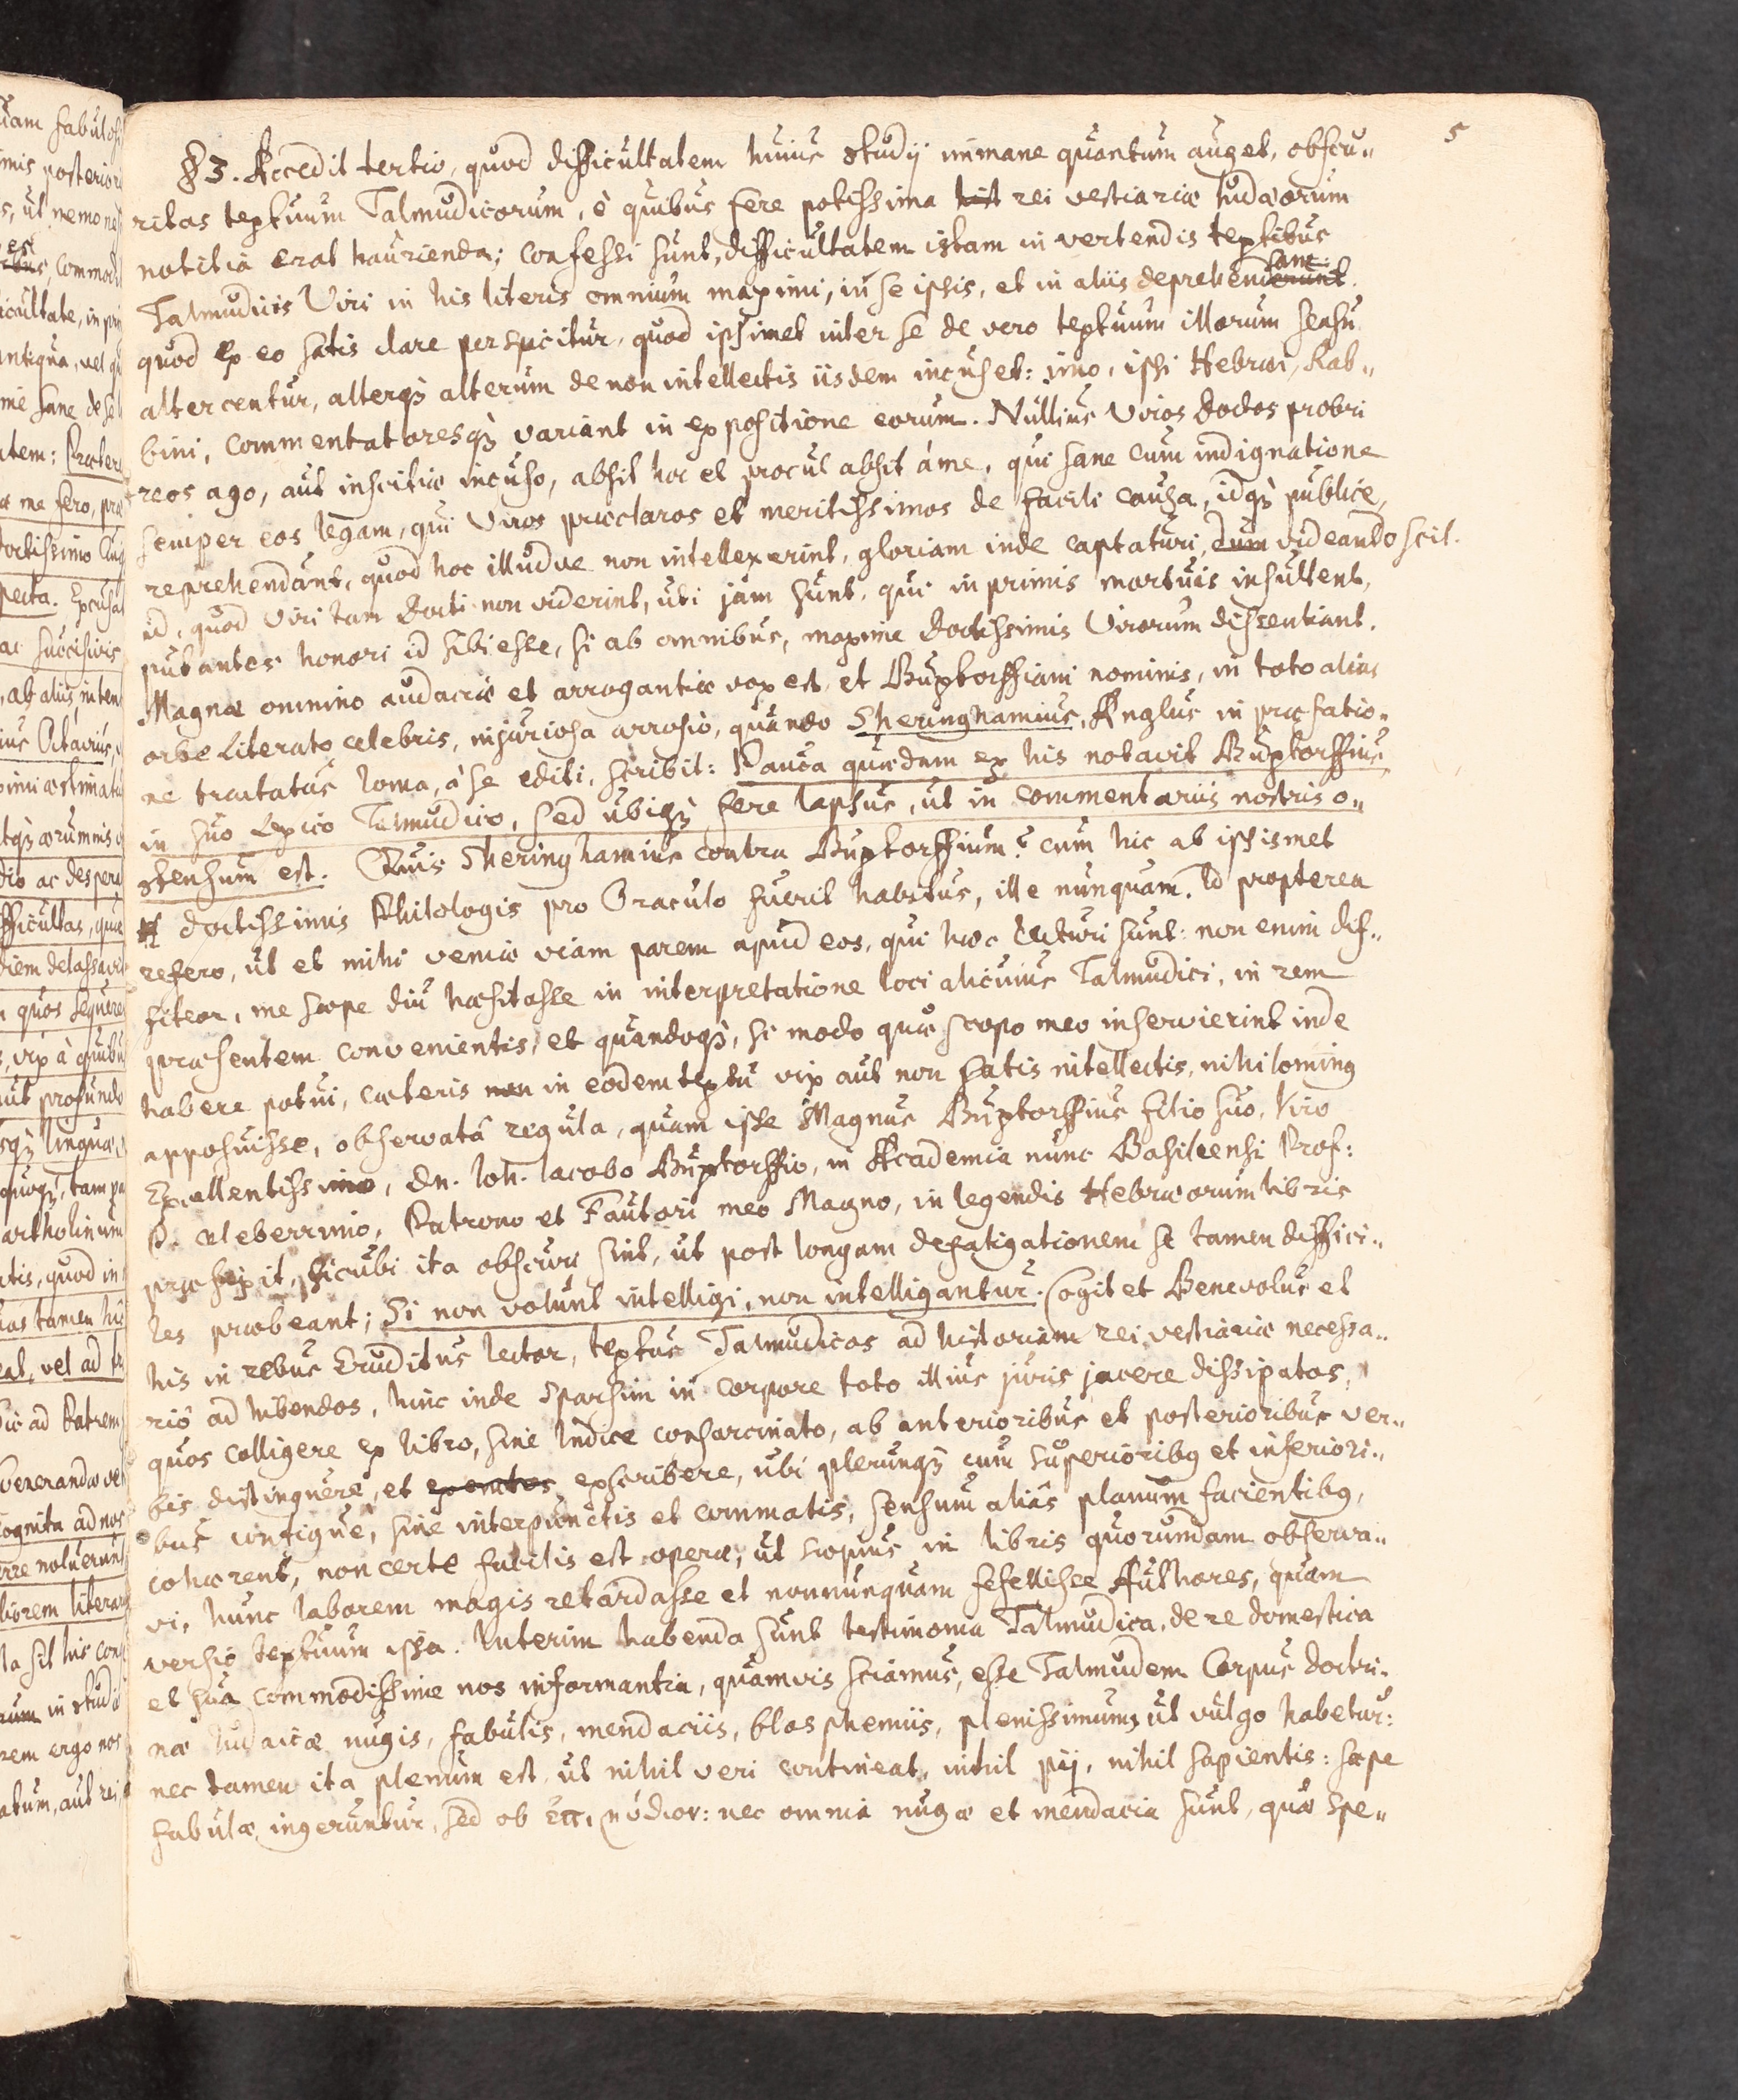 5
§ 3. Accedit tertio, quod difficultatem huius studij immane quantum auget, obscu„
ritas textuum Talmudicorum, è quibus fere potissima hist rei vestiariæ Iudæorum
notitia erat haurienda; confessi sunt, difficultatem istam in vertendis textibus
sane:
Talmudicis Viri in his literis omnium maximi, in se ipsis, et in aliis deprehenderunt.
quod ex eo satis clare perspicitur, quod ipsimet inter se de vero textuum illorum sensu
altercentur, alterqꝫ alterum de non intellectis iisdem incuset: imo, ipsi Hebræi, Rab„
bini, commentatoresqꝫ variant in expositione eorum. Nullius Viros doctos probri
reos ago, aut inscitiæ incuso, absit hoc et procul absit á me, qui sane cum indignatione
semper eos legam, qui Viros præclaros et meritissimos de facili causa, idqꝫ publice,
reprehendant, quod hoc illudve non intellexerint, gloriam inde captaturi, dum videando scil.
id, quod Viri tam docti non viderint, ubi jam sunt, qui inprimis mortuis insultent,
putantes honori id sibi esse, si ab omnibus, maxime doctissimis Virorum dissentiant.
Magnæ omnino audaciæ et arrogantiæ vox est, et Buxtorffiani nominis, in toto alias
orbe Literato celebris, injuriosa arrosio, quando Sheringhamius, Anglus in præfatio„
ne tractatus Ioma, à se editi, scribit: Pauca quædam ex his notavit Buxtorffius
in suo Lexico Talmudico, sed ubiqꝫ fere lapsus, ut in commentariis nostris o„
stensum est. Quis Sheringhamius contra Buxtorffium? cum hic ab ipsismet
doctissimis Philologis pro Oraculo fuerit habitus, ille nunquam. Id propterea
refero, ut et mihi veniæ viam parem apud eos, qui hæc lecturi sunt: non enim dif„
fiteor, me sæpe diu hæsitasse in interpretatione loci alicuius Talmudici, in rem
præsentem convenientis, et quandoqꝫ, si modo quæ scopo meo inservierint inde
habere potui, cæteris non in eodem textu vix aut non satis intellectis, nihilominꝰ
apposuisse, observatâ regula, quam ipse Magnus Buxtorffius filio suo, Viro
Excellentissimo, Dn. Ioh. Iacobo Buxtorffio, in Academia nunc Basileensi Prof:
P. celeberrimo, Patrono et Fautori meo Magno, in legendis Hebræorum libris
præfixit, sicubi ita obscuri sint, ut post longam defatigationem se tamen diffici„
les præbeant; Si non volunt intelligi, non intelligantur. Cogitet Benevolus et
his in rebus Eruditus lector, textus Talmudicos ad historiam rei vestiariæ necessa„
riò adhibendos, hinc inde sparsim in corpore toto illius juris jacere dissipatos,
quos colligere ex libro, sine Indice consarcinato, ab anterioribus et posterioribus ver„
bis distinguere, et exemtos exscribere, ubi plerunqꝫ cum superioribꝰ et inferiori„
bus contigue, sine interpunctis et commatis, sensum aliàs planum facientibꝰ,
cohærent, non certe facilis est operæ, ut sæpius in libris quorundam observa„
vi, hunc laborem magis retardasse et nonnunquam fefellisse Authores, quam
versio textuum ipsa. Interim habenda sunt testimonia Talmudica, de re domestica
et sua commodissime nos informantia, quamvis sciamus, esse Talmudem Corpus doctri„
næ Iudaicæ nugis, fabulis, mendaciis, blasphemiis, plenissimum, ut vulgo habetur:
nec tamen ita plenum est, ut nihil veri contineat, nihil pij, nihil sapientis: sæpe
fabulæ ingeruntur, sed ob nec omnia nugæ et mendacia sunt, quæ spe„